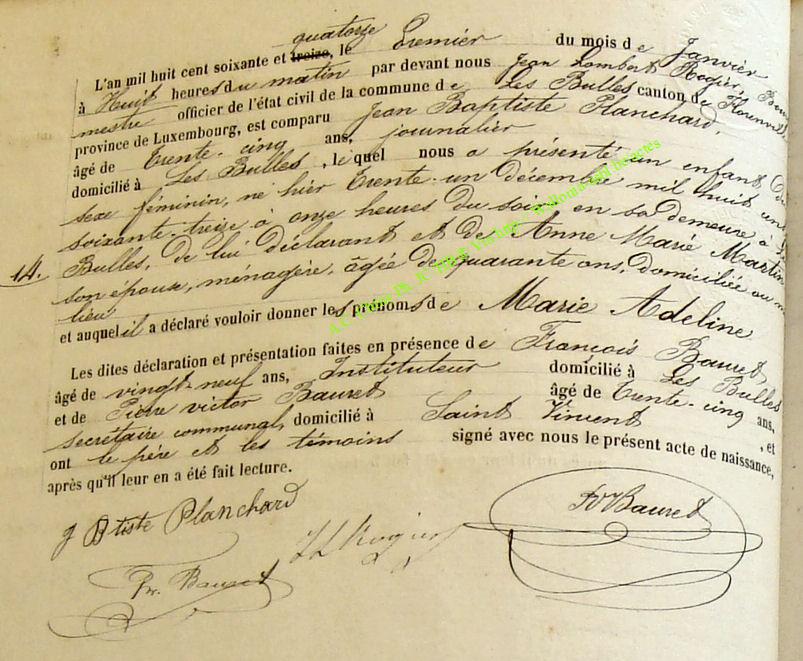 quatorze
L'an mil huit cent soixante et treize, le Premier du mois de Janvier
à Huit heures du matin par devant nous Jean Lambert Rogier, Bourg
mestre officier de l'état civil de la commune de Les Bulles canton de Florenville
province de Luxembourg, est comparu Jean Baptiste Planchard,
âgé de trente-cinq ans, journalier
domicilié à Les Bulles, lequel nous a présenté un enfant du
sexe féminin, né hier trente-un décembre mil huit cent
soixante-treize à onze heures du soir en sa demeure à Les
14. Bulles, de lui déclarant et de Anne Marie Martin
son épouse, ménagère, âgée de quarante ans, domiciliée au même
lieu
et auquel il a déclaré vouloir donner les prénoms de Marie Adeline
Les dites déclaration et présentation faites en présence de François Bauret
âgé de vingt-neuf ans, Instituteur domicilié à Les Bulles
et de Pierre victor Bauret âgé de trente-cinq ans,
secrétaire communal, domicilié à Saint Vincent, et
ont le père et les témoins signé avec nous le présent acte de naissance,
après qu'il leur en a été fait lecture.
J Btiste Planchard
JL Rogier
PVBauret
Fr. Bauret